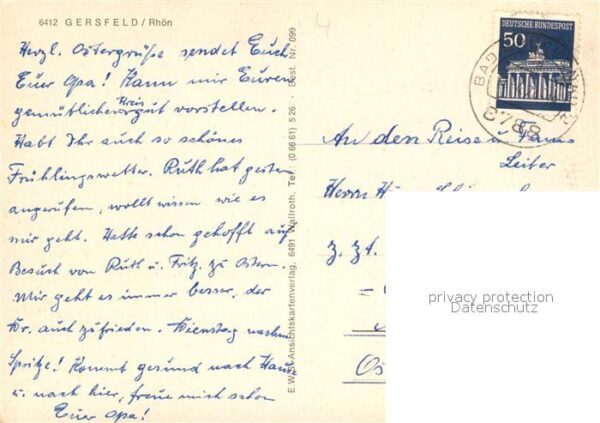 6412 GERSFELD / Rhön
Herzl. Ostergrüße sendet Euch
Euer Opa! Kann mir Euren
gemütlichen Kreis gut vorstellen.
Habt Ihr auch so schönes
Frühlingswetter. Ruth hat gestern
angerufen, wollt wissen wie es
mir geht. Hatte schon gehofft auf
Besuch von Ruth u. Fritz zu Ostern.
Mir geht es immer besser, der
Dr. auch zufrieden. Dienstag nachm
Spritze! Kommt gesund nach Hause
u. nach hier, freue mich schon
Euer Opa!
E.W.St. Ansichtskartenverlag, 6491 Wallroth, Tel. (0 66 61) 5 26 · Best. Nr. 099
4
DEUTSCHE BUNDESPOST
50
BAD
8788
An den Reise u.
Leiter
Herrn
z. Zt.
privacy protection
Datenschutz